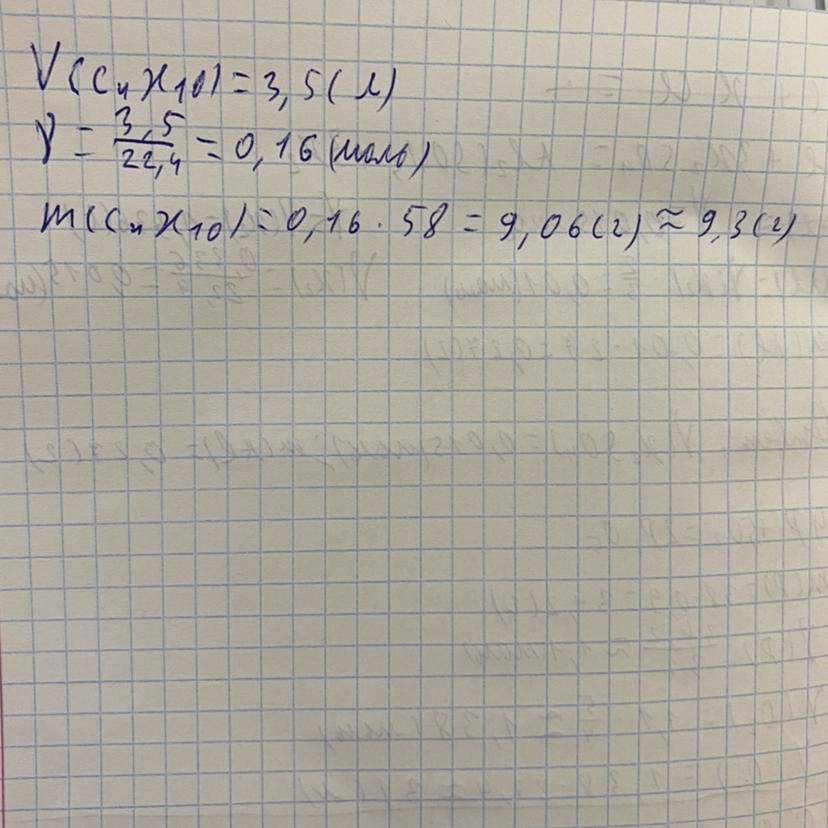 V(C₄H₁₀) = 3,5(л)
ν = 3,5/22,4 = 0,16 (моль)
m(C₄H₁₀) = 0,16 · 58 = 9,06(г) ≈ 9,3(г)